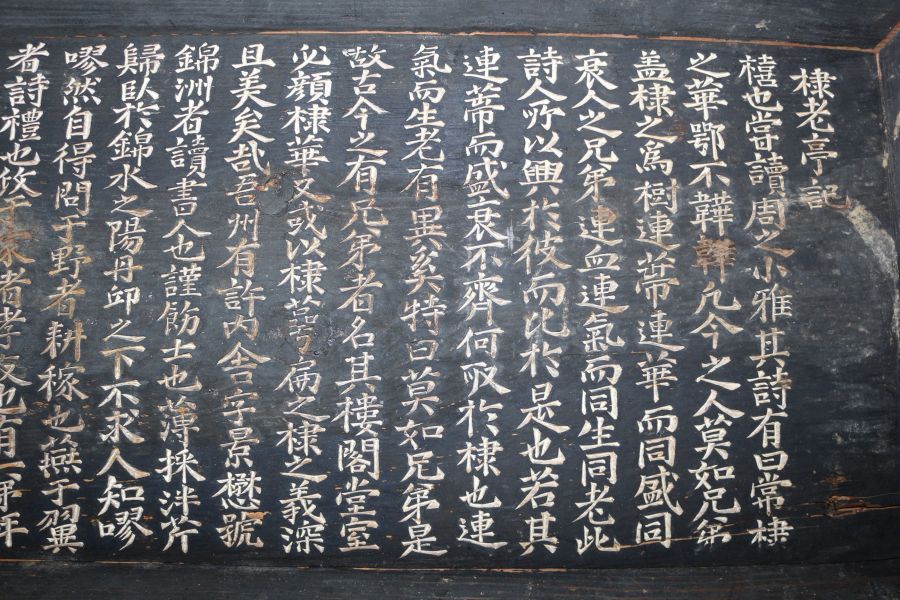 棣老亭記
檣也嘗讀周之小雅其詩有曰常棣
之華鄂不韡韡凡今之人莫如兄弟
盖棣之爲樹連蔕連華而同盛同
衰人之兄弟連血連氣而同生同老此
詩人所以興於彼而比於是也若其
連蔕而盛衰不齊何取於棣也連
氣而生老有異奚特曰莫如兄弟是
故古今之有兄弟者名其樓閣堂室
必顔棣華又或以棣萼扁之棣之義深
且美矣哉吾州有許內舍字景懋號
錦洲者讀書人也謹飭士也薄採泮芹
歸臥於錦水之陽丹邱之下不求人知嘐
嘐然自得問于野者耕稼也燕于翼
者詩禮也攸 者孝友也有一弟年